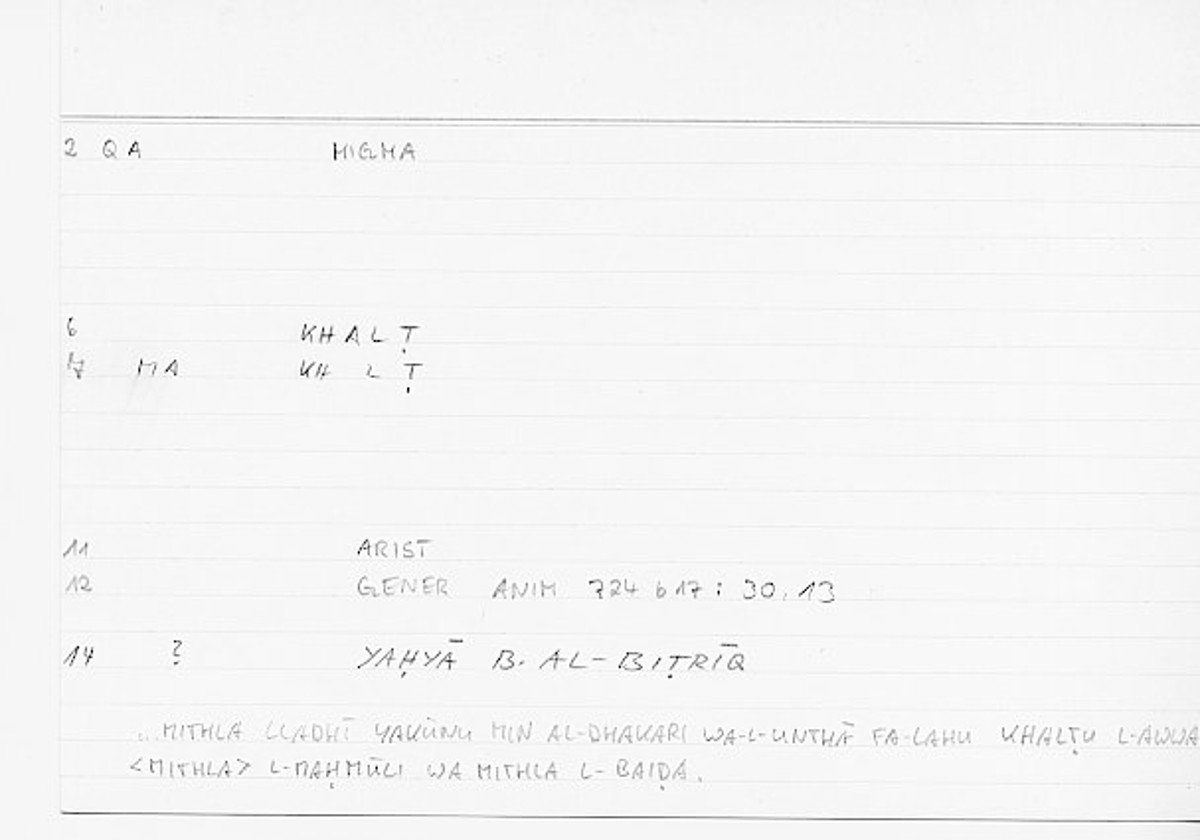 2 QA MIGMA
6 KHALṬ
7 MA KH L Ṭ
11 ARIST
12 GENER ANIM 724 b 17 : 30.13
14 ? YAḤYĀ B. AL-BIṬRĪQ
... MITHLA LLADHĪ YAKŪNU MIN AL-DHAKARI WA-L-UNTHĀ FA-LAHU KHALṬU L-AWWA
<MITHLA> L-MAḤMŪLI WA MITHLA L-BAIḌA.